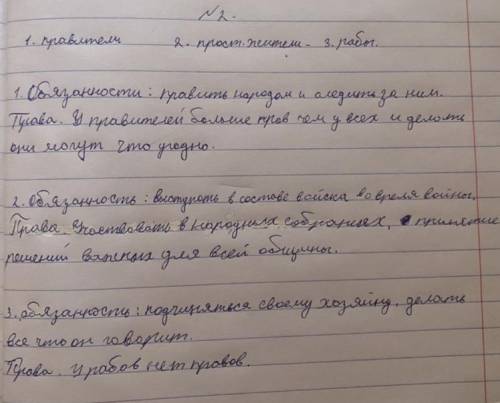 №2.
1. правители 2. прост. жители - 3. рабы.
1. Обязанности: править народом и следить за ним.
Права. У правителей больше прав чем у всех и делать
они могут что угодно.
2. Обязанность: выступать в составе войска во время войны.
Права. Участвовать в народных собраниях, принятие
решений важных для всей общины.
3. обязанность: подчиняться своему хозяину, делать
все что он говорит.
Права. У рабов нет правов.